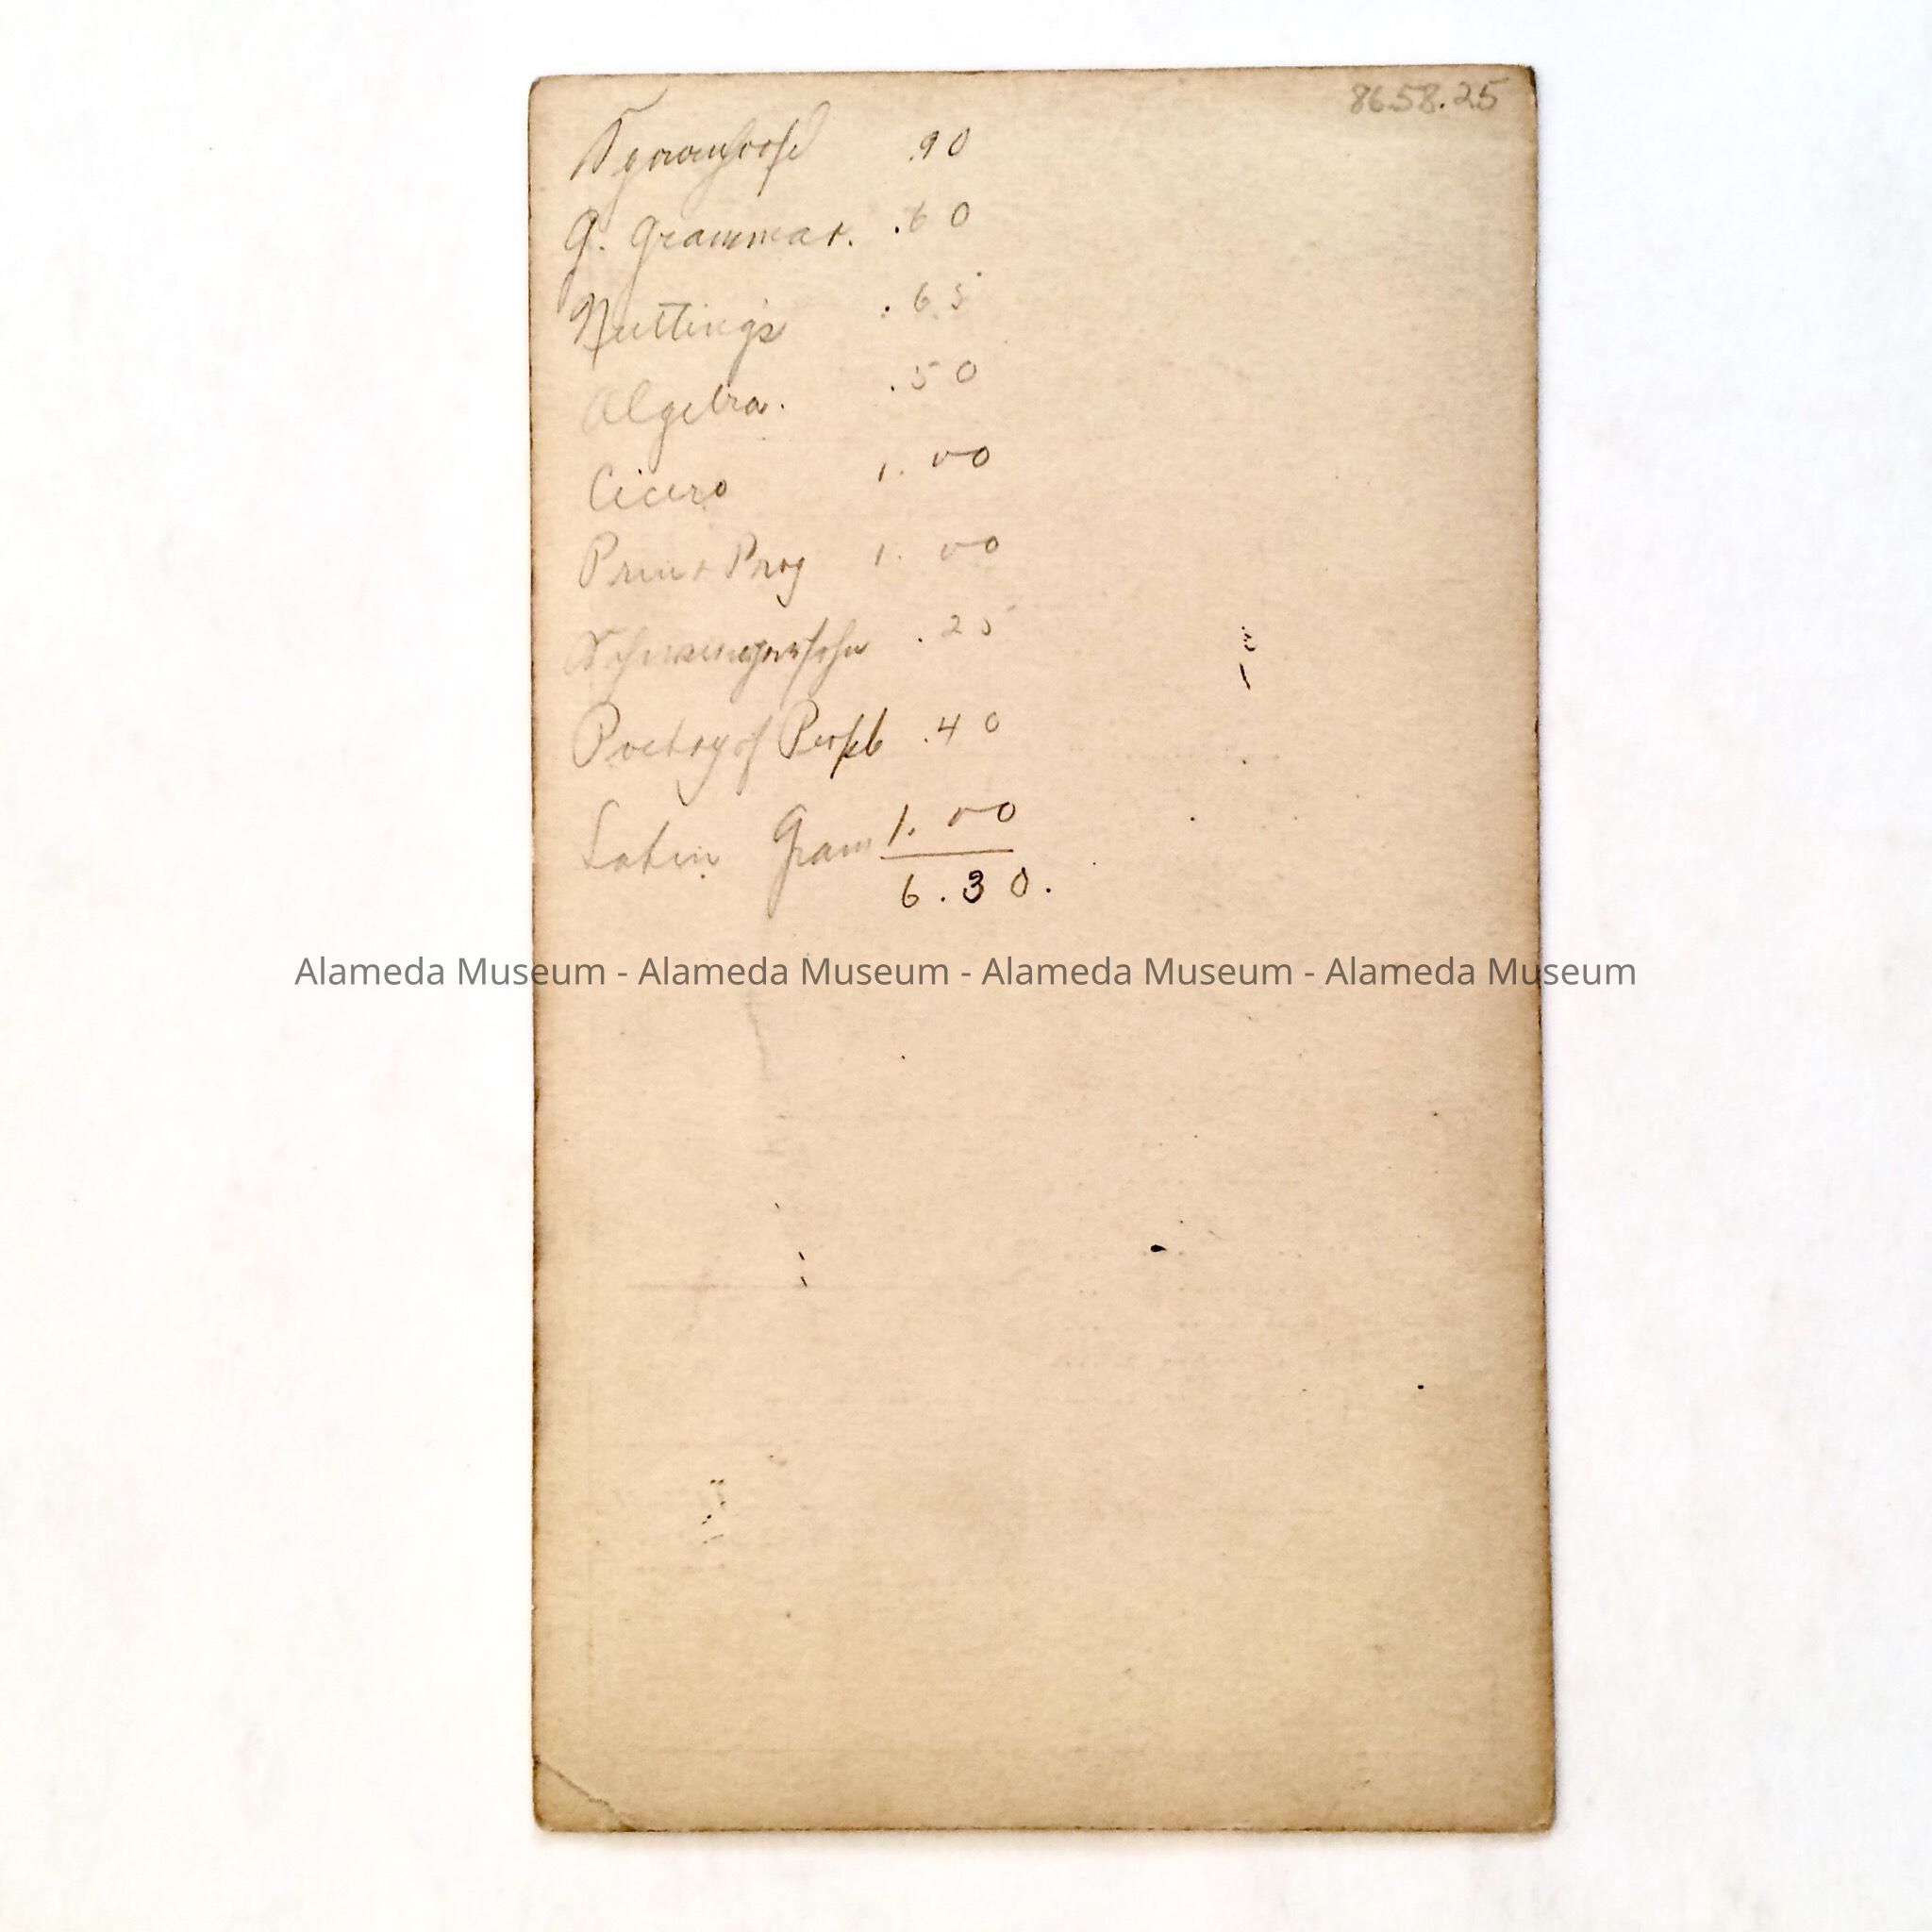 8658.25
.90
G. Grammar. .60
Nutting's .65
Algebra. .50
Cicero 1.00
Prin & Prog 1.00
.25
Poetry of .40
Latin Gram 1.00
6.30.
Alameda Museum - Alameda Museum - Alameda Museum - Alameda Museum